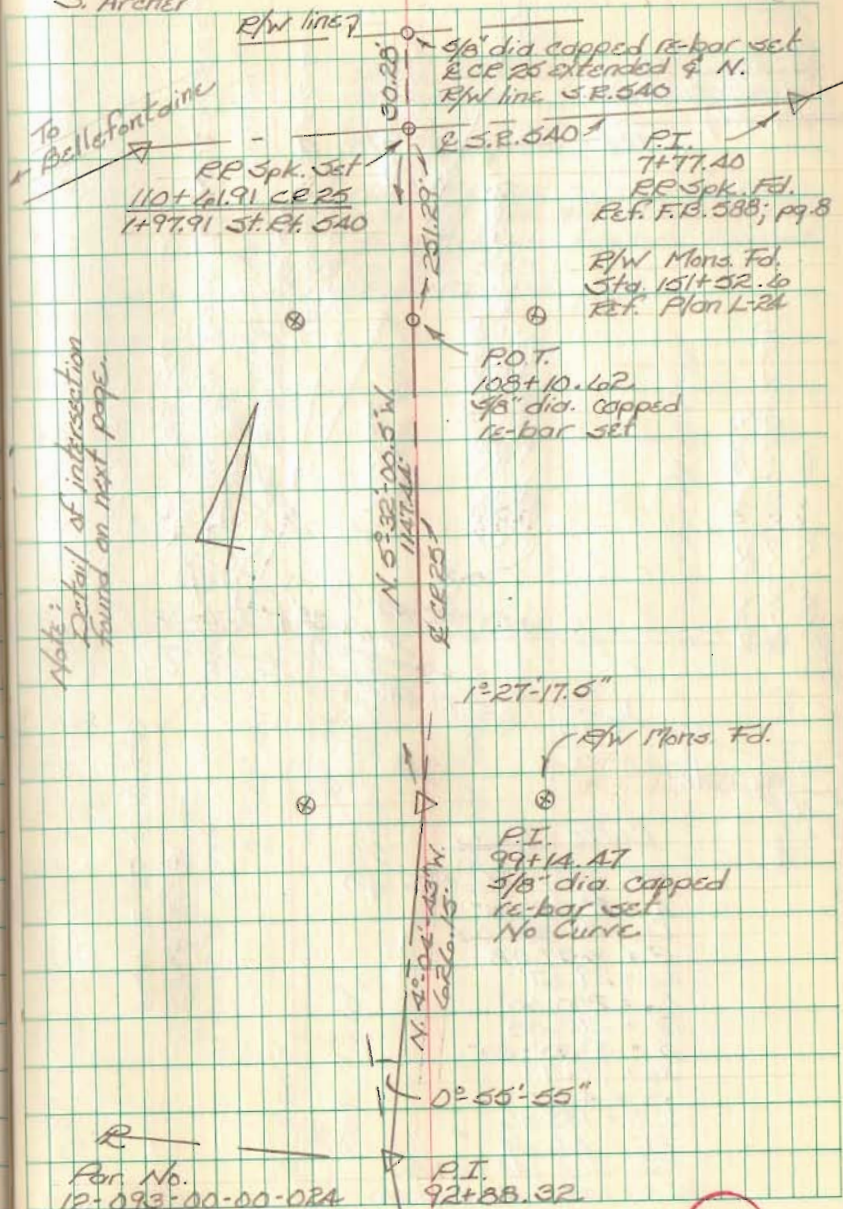 S. Archer
R/W line
5/8" dia capped re-bar set
℄ CR 25 extended & N.
R/W line S.R. 540
30.28'
To
Bellefontaine
℄ S.R. 540
RR Spk. Set
110+61.91 CR 25
1+97.91 St. Rt. 540
P.I.
7+77.40
RR Spk. Fd.
Ref. F.B. 588; pg. 8
251.29'
R/W Mons. Fd.
Sta. 151+52.6
Ref. Plan L-24
P.O.T.
108+10.62
5/8" dia. capped
re-bar set
Note:
Detail of intersection
found on next page.
N. 5°-32'-00.5" W.
1147.44'
℄ CR 25
1°-27'-17.5"
R/W Mons. Fd.
P.I.
99+14.47
5/8" dia capped
re-bar set
No Curve
N. 4°-04'-43" W.
626.15'
0°-55'-55"
Par. No.
12-093-00-00-02A
P.I.
92+88.32